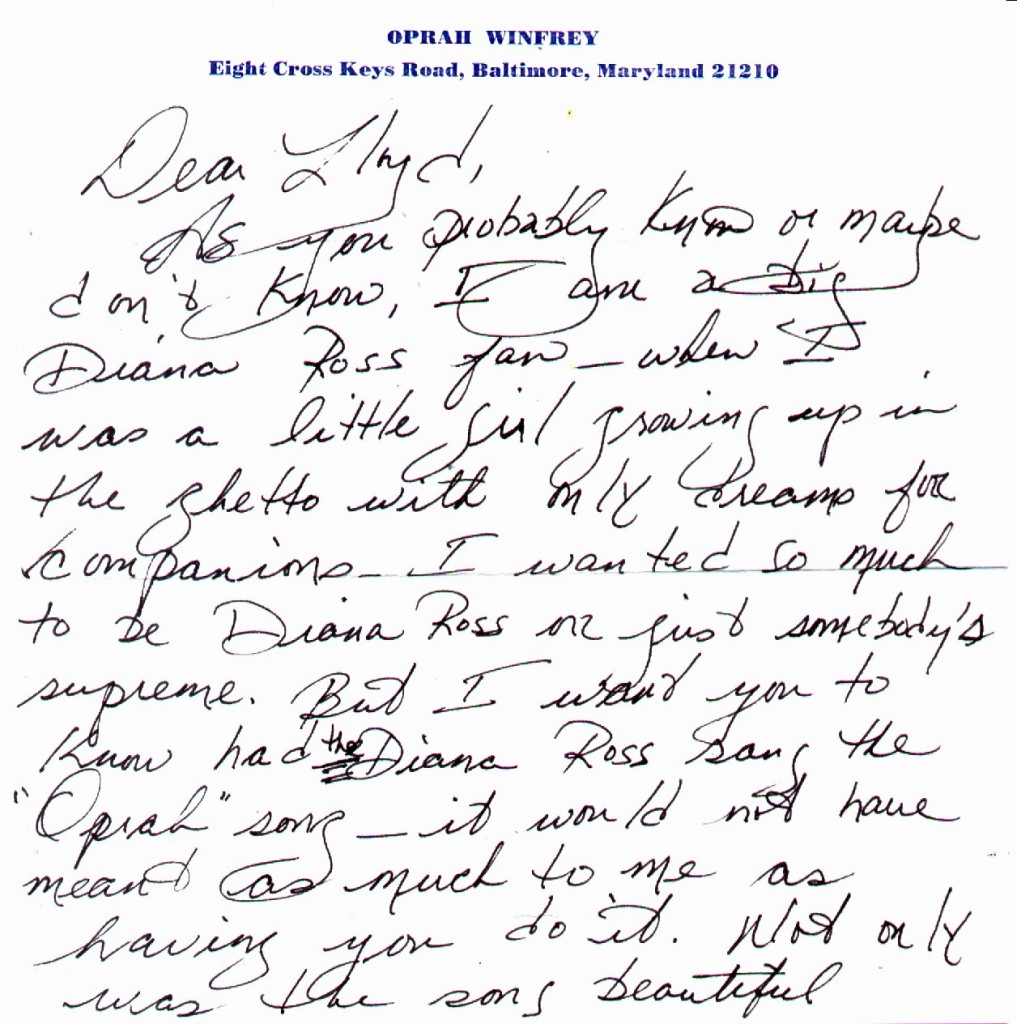 OPRAH WINFREY
Eight Cross Keys Road, Baltimore, Maryland 21210
Dear Lloyd,
As you probably know or maybe
don't know, I am a big
Diana Ross fan – when I
was a little girl growing up in
the ghetto with only dreams for
companions – I wanted so much
to be Diana Ross or just somebody's
supreme. But I want you to
know had the Diana Ross sang the
"Oprah" song – it would not have
meant as much to me as
having you do it. Not only
was the song beautiful